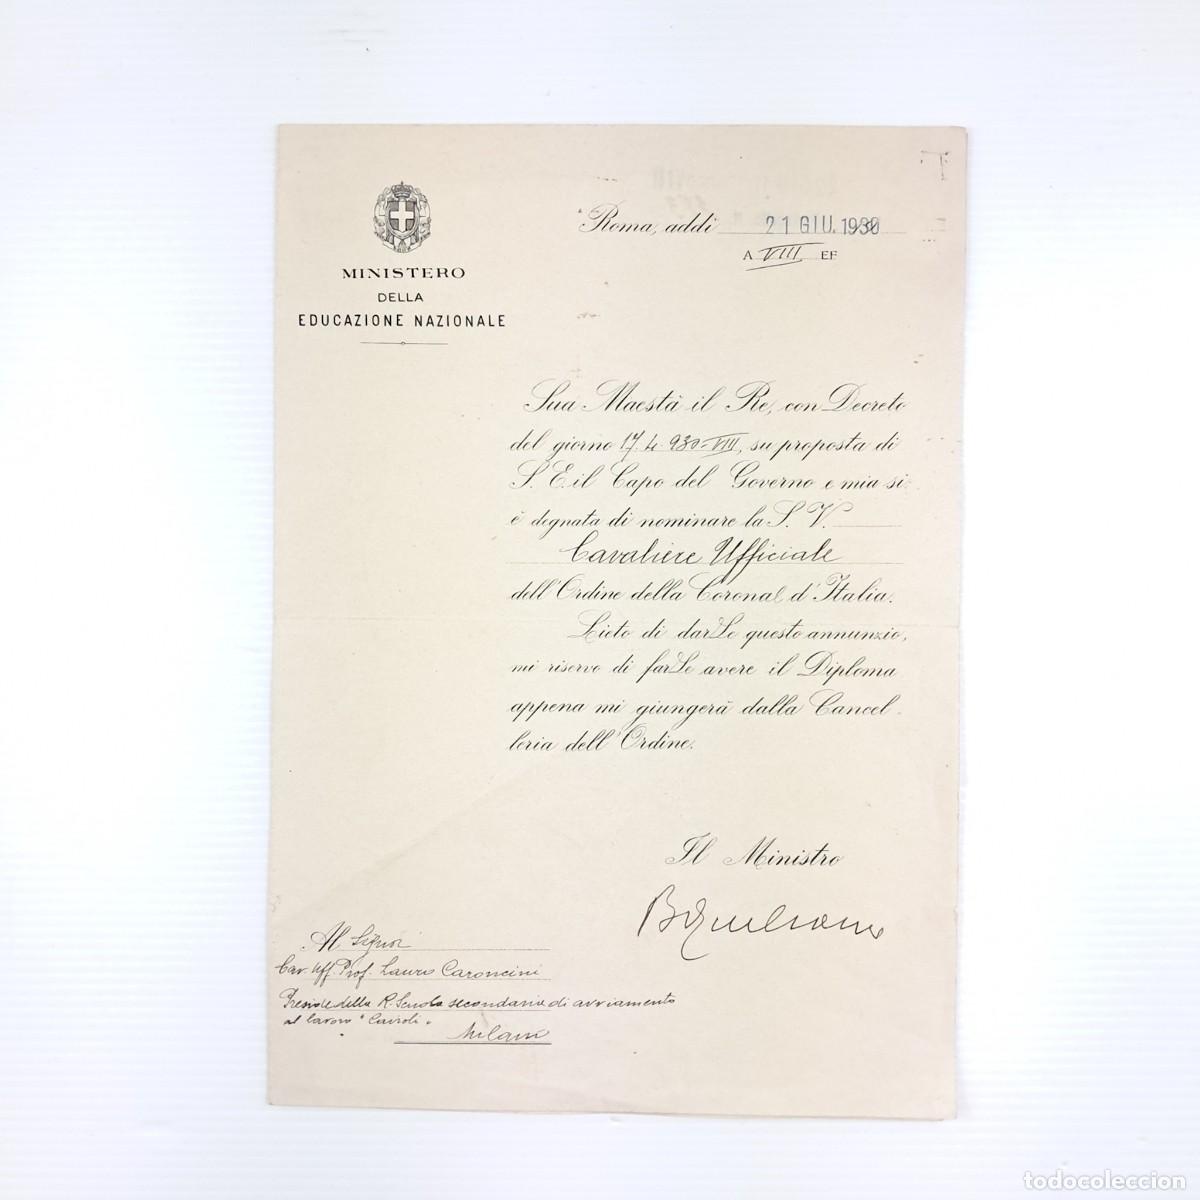 MINISTERO
DELLA
EDUCAZIONE NAZIONALE
Roma, addì 21 GIU. 1930
A VIII EF
Sua Maestà il Re, con Decreto
del giorno 17.4.930-VIII, su proposta di
S. E. il Capo del Governo e mia si
è degnata di nominare la S. V.
Cavaliere Ufficiale
dell'Ordine della Corona d'Italia.
Lieto di darLe questo annunzio,
mi riservo di farLe avere il Diploma
appena mi giungerà dalla Cancel-
leria dell'Ordine.
Il Ministro
Al Signor
Cav. Uff. Prof. Lauro Caroncini
Preside della R. Scuola secondaria di avviamento
al lavoro "Cairoli"
Milano
todocoleccion